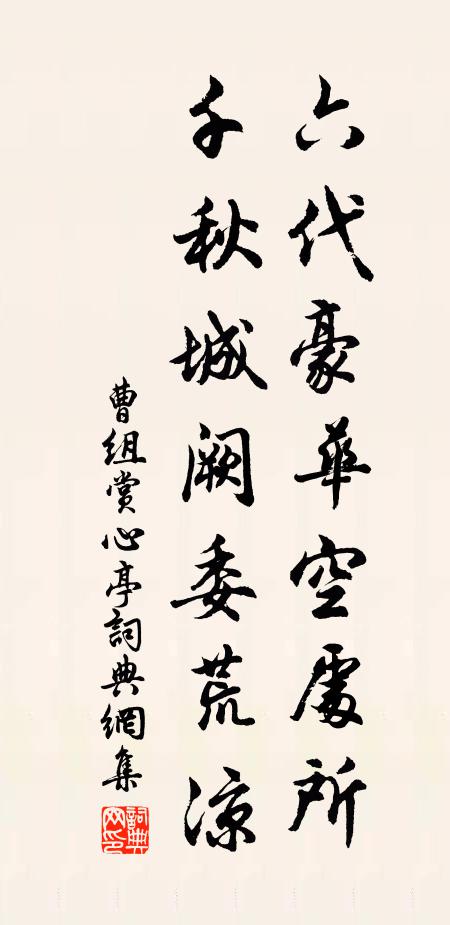 六代豪華空處所
千秋城闕委荒涼
曹組賞心亭詞典網集
詞典網印